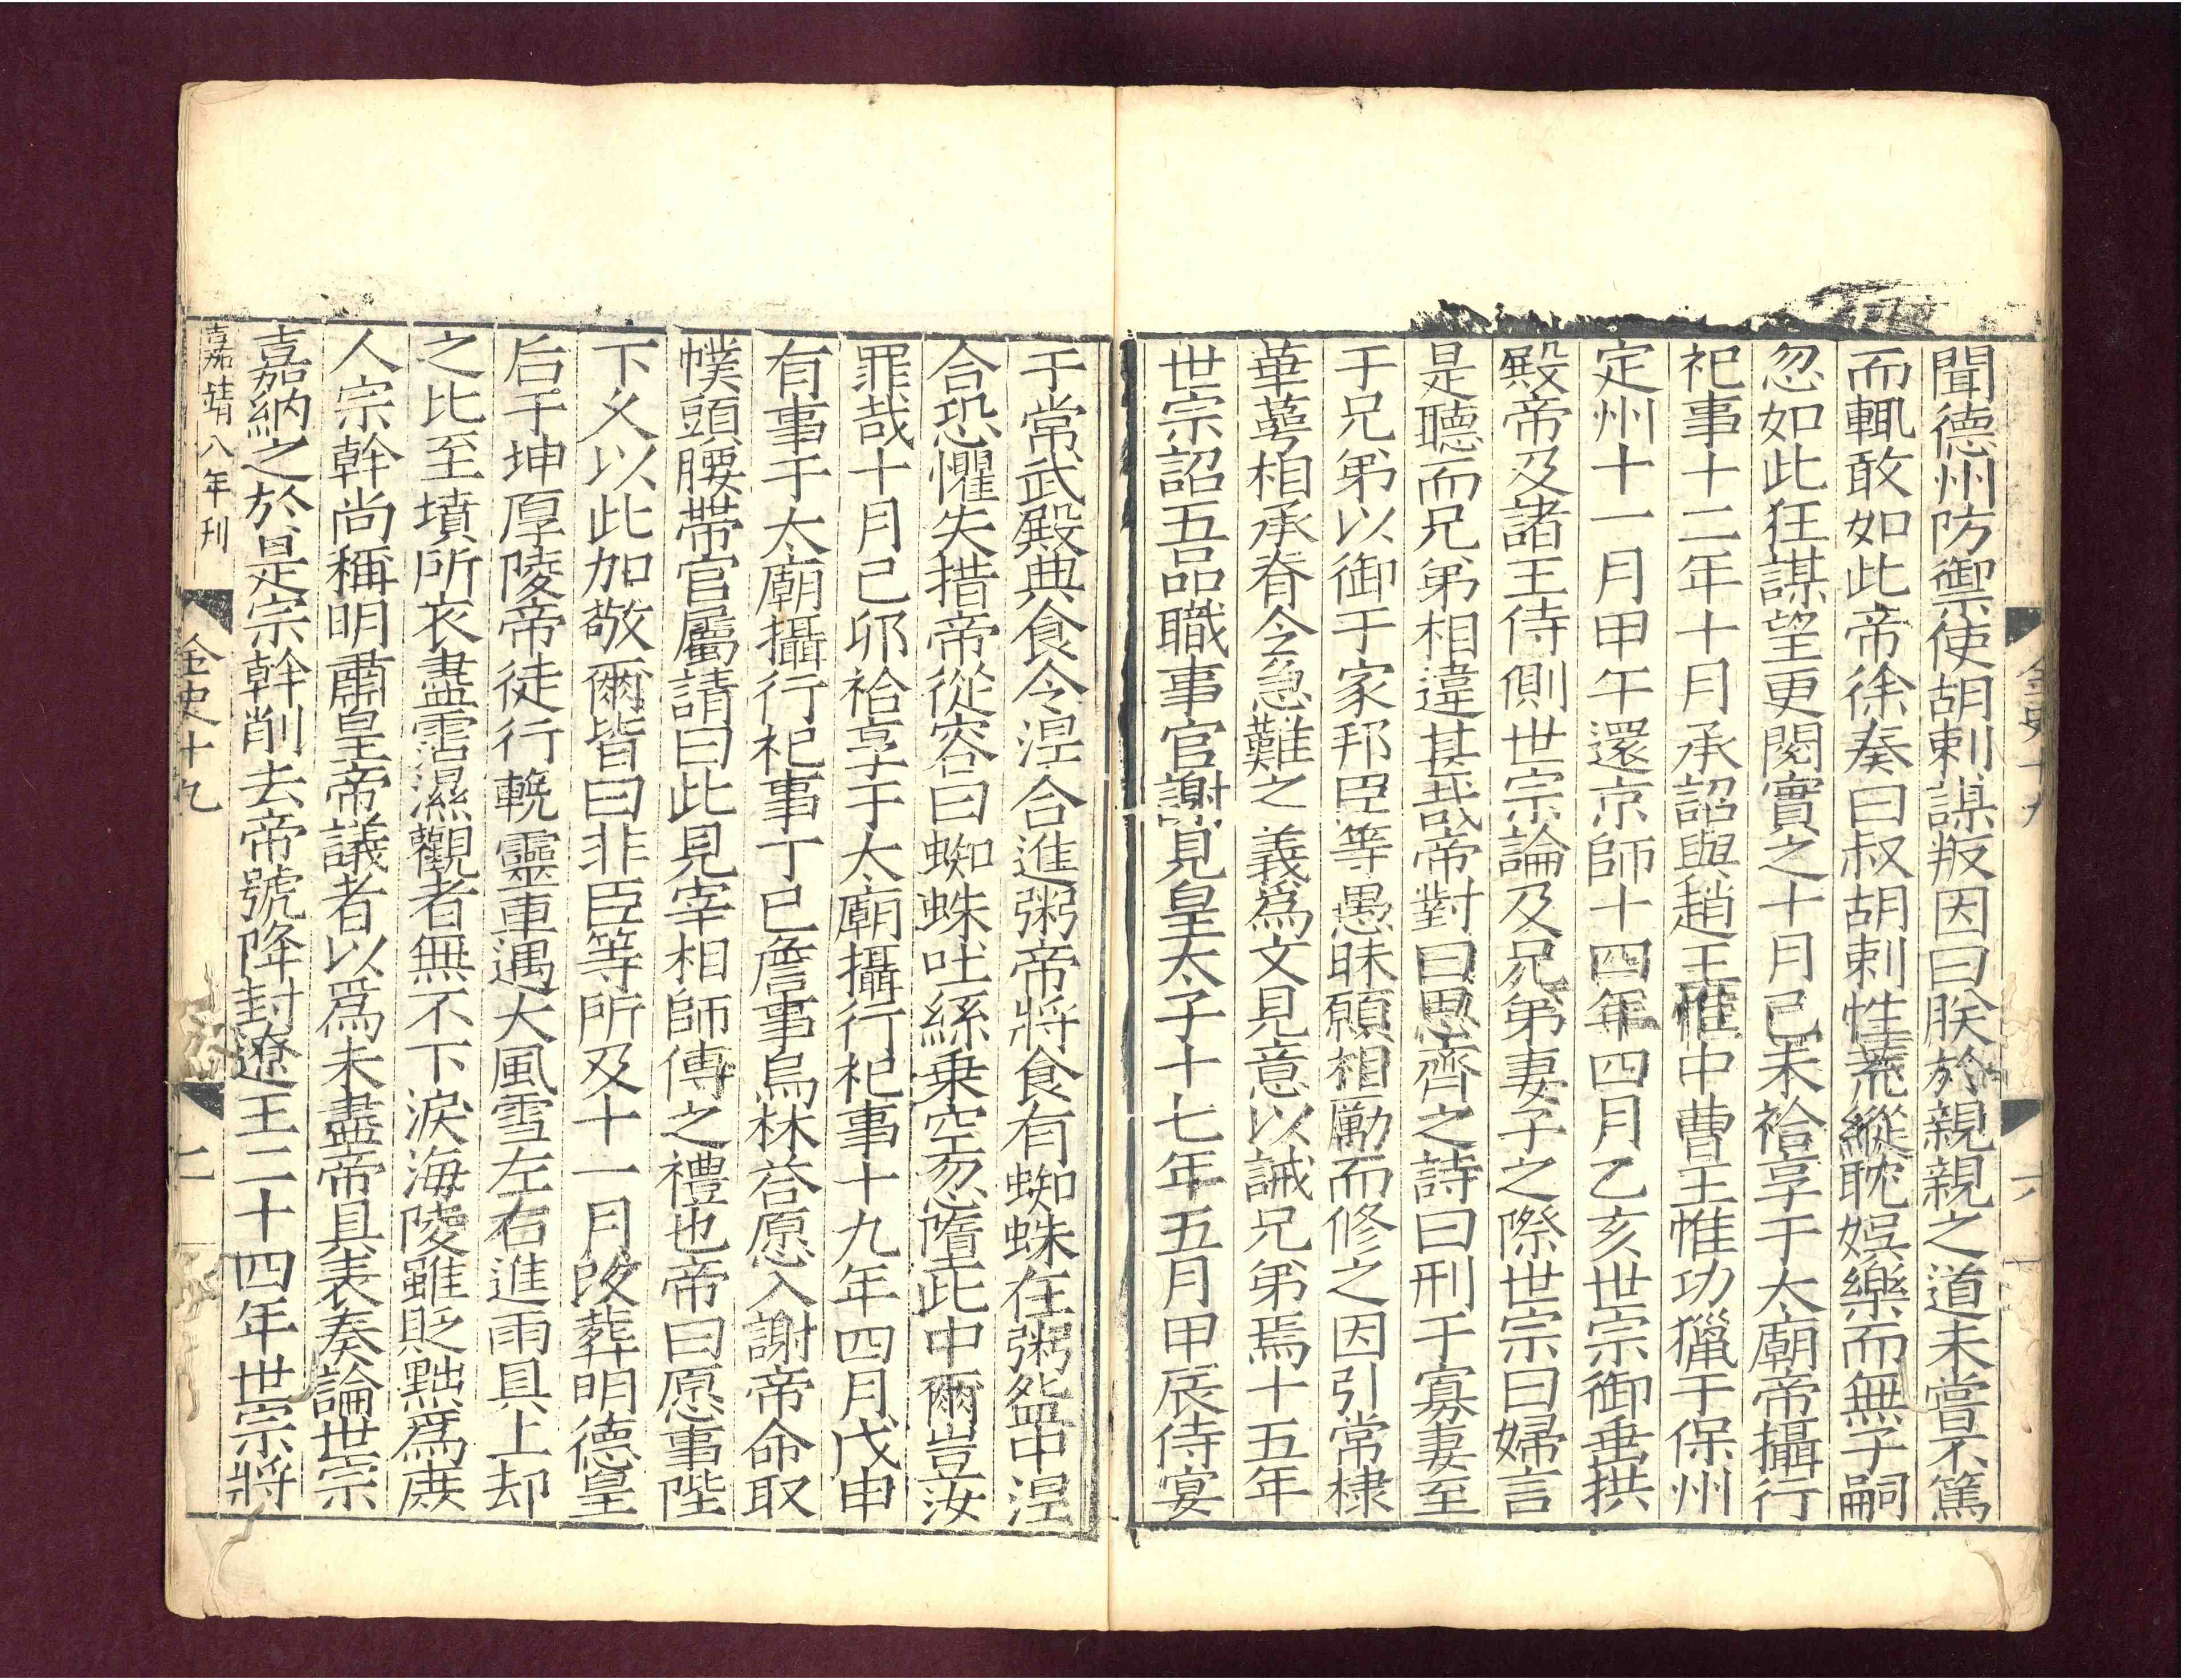 金史十九
六
聞德州防禦使胡剌謀叛因曰朕於親親之道未嘗不篤
而輒敢如此帝徐奏曰叔胡剌性荒縱耽娛樂而無子嗣
忽如此狂謀望更閱實之十月己未祫享于太廟帝攝行
祀事十二年十月承詔與趙王惟中曹王惟功獵于保州
定州十一月甲午還京師十四年四月乙亥世宗御垂拱
殿帝及諸王侍側世宗論及兄弟妻子之際世宗曰婦言
是聽而兄弟相違甚哉帝對曰思齊之詩曰刑于寡妻至
于兄弟以御于家邦臣等愚昧願相勵而修之因引常棣
華萼相承脊令急難之義爲文見意以誡兄弟焉十五年
世宗詔五品職事官謝見皇太子十七年五月甲辰侍宴
于常武殿典食令涅合進粥帝將食有蜘蛛在粥盌中涅
合恐懼失措帝從容曰蜘蛛吐絲乗空忽墮此中爾豈汝
罪哉十月己卯祫享于太廟攝行祀事十九年四月戊申
有事于太廟攝行祀事丁巳詹事烏林荅愿入謝帝命取
幞頭腰帶官屬請曰此見宰相師傅之禮也帝曰愿事陛
下久以此加敬爾皆曰非臣等所及十一月改葬明德皇
后于坤厚陵帝徒行輓靈車遇大風雪左右進雨具上却
之比至墳所衣盡霑濕觀者無不下淚海陵雖貶黜爲庶
人宗幹尚稱明肅皇帝議者以爲未盡帝具表奏論世宗
嘉納之於是宗幹削去帝號降封遼王二十四年世宗將
嘉靖八年刊
金史十九
七